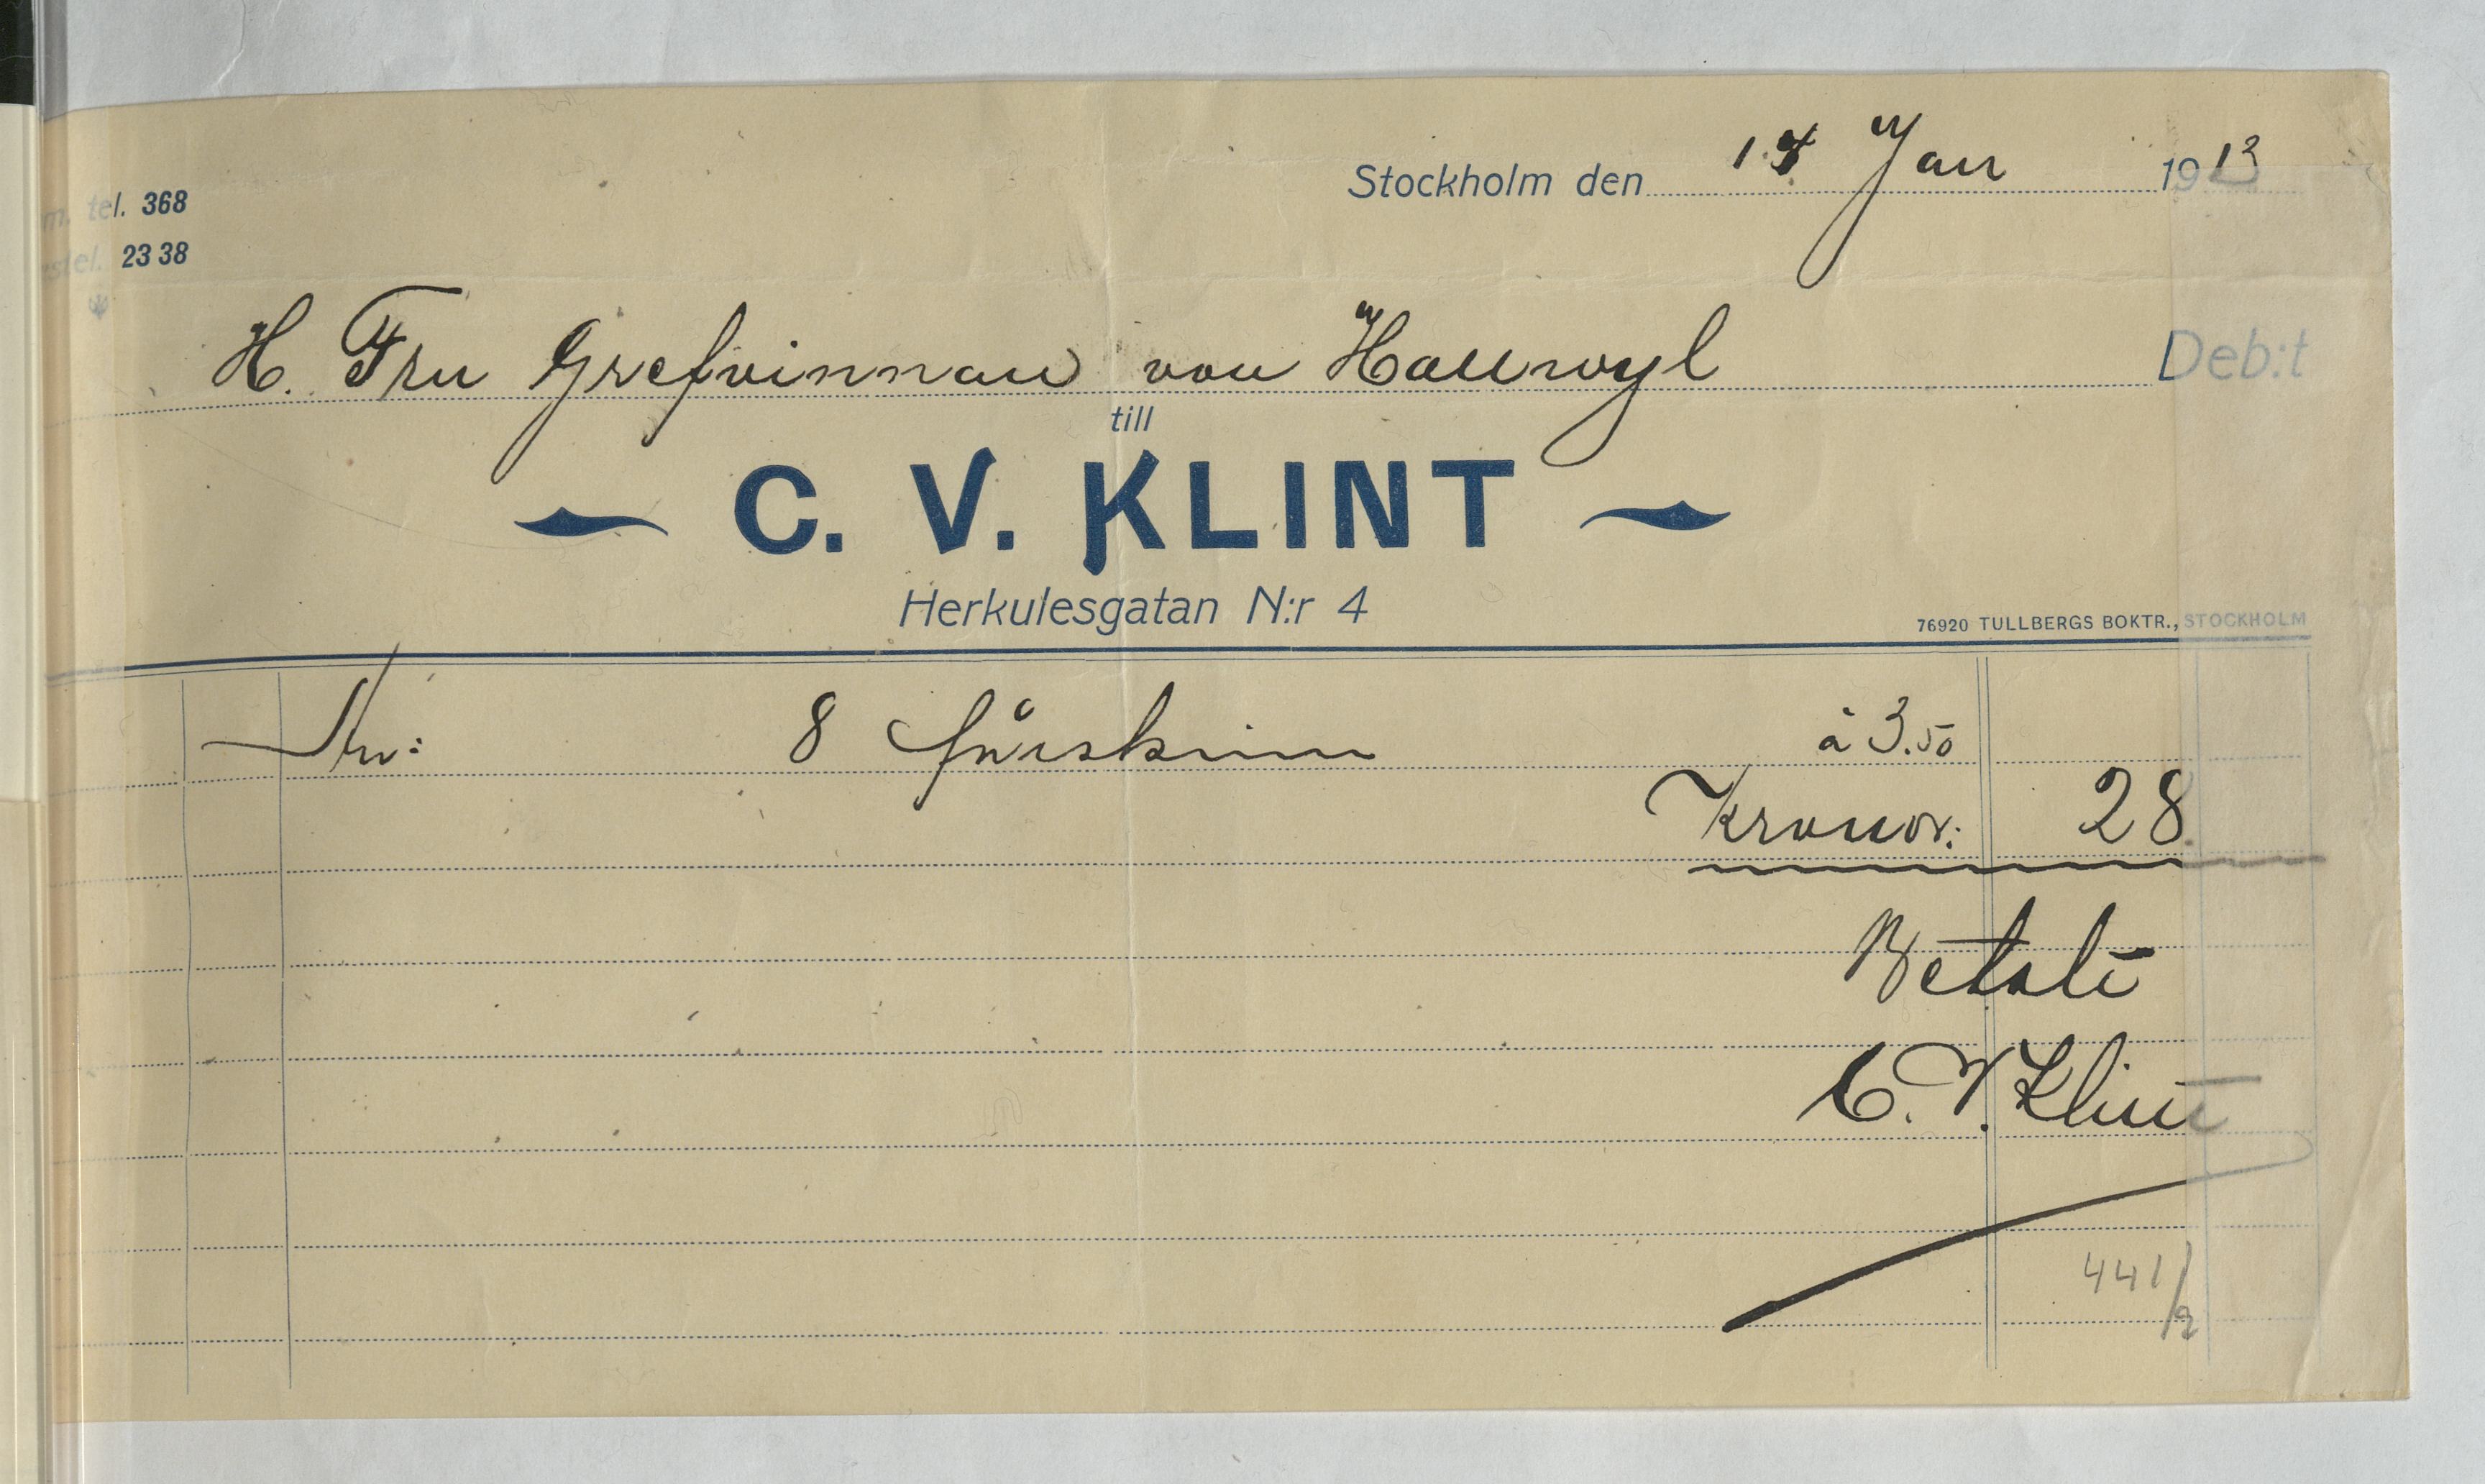 Stockholm den 14 Jan 1913
m. tel. 368
stel. 23 38
H. Fru Grefvinnan von Hallwyl Deb:t
till
C. V. KLINT
Herkulesgatan N:r 4
76920 TULLBERGS BOKTR., STOCKHOLM
8 fårskinn à 3.50
Kronor: 28
Betalt
C. V. Klint
441/2